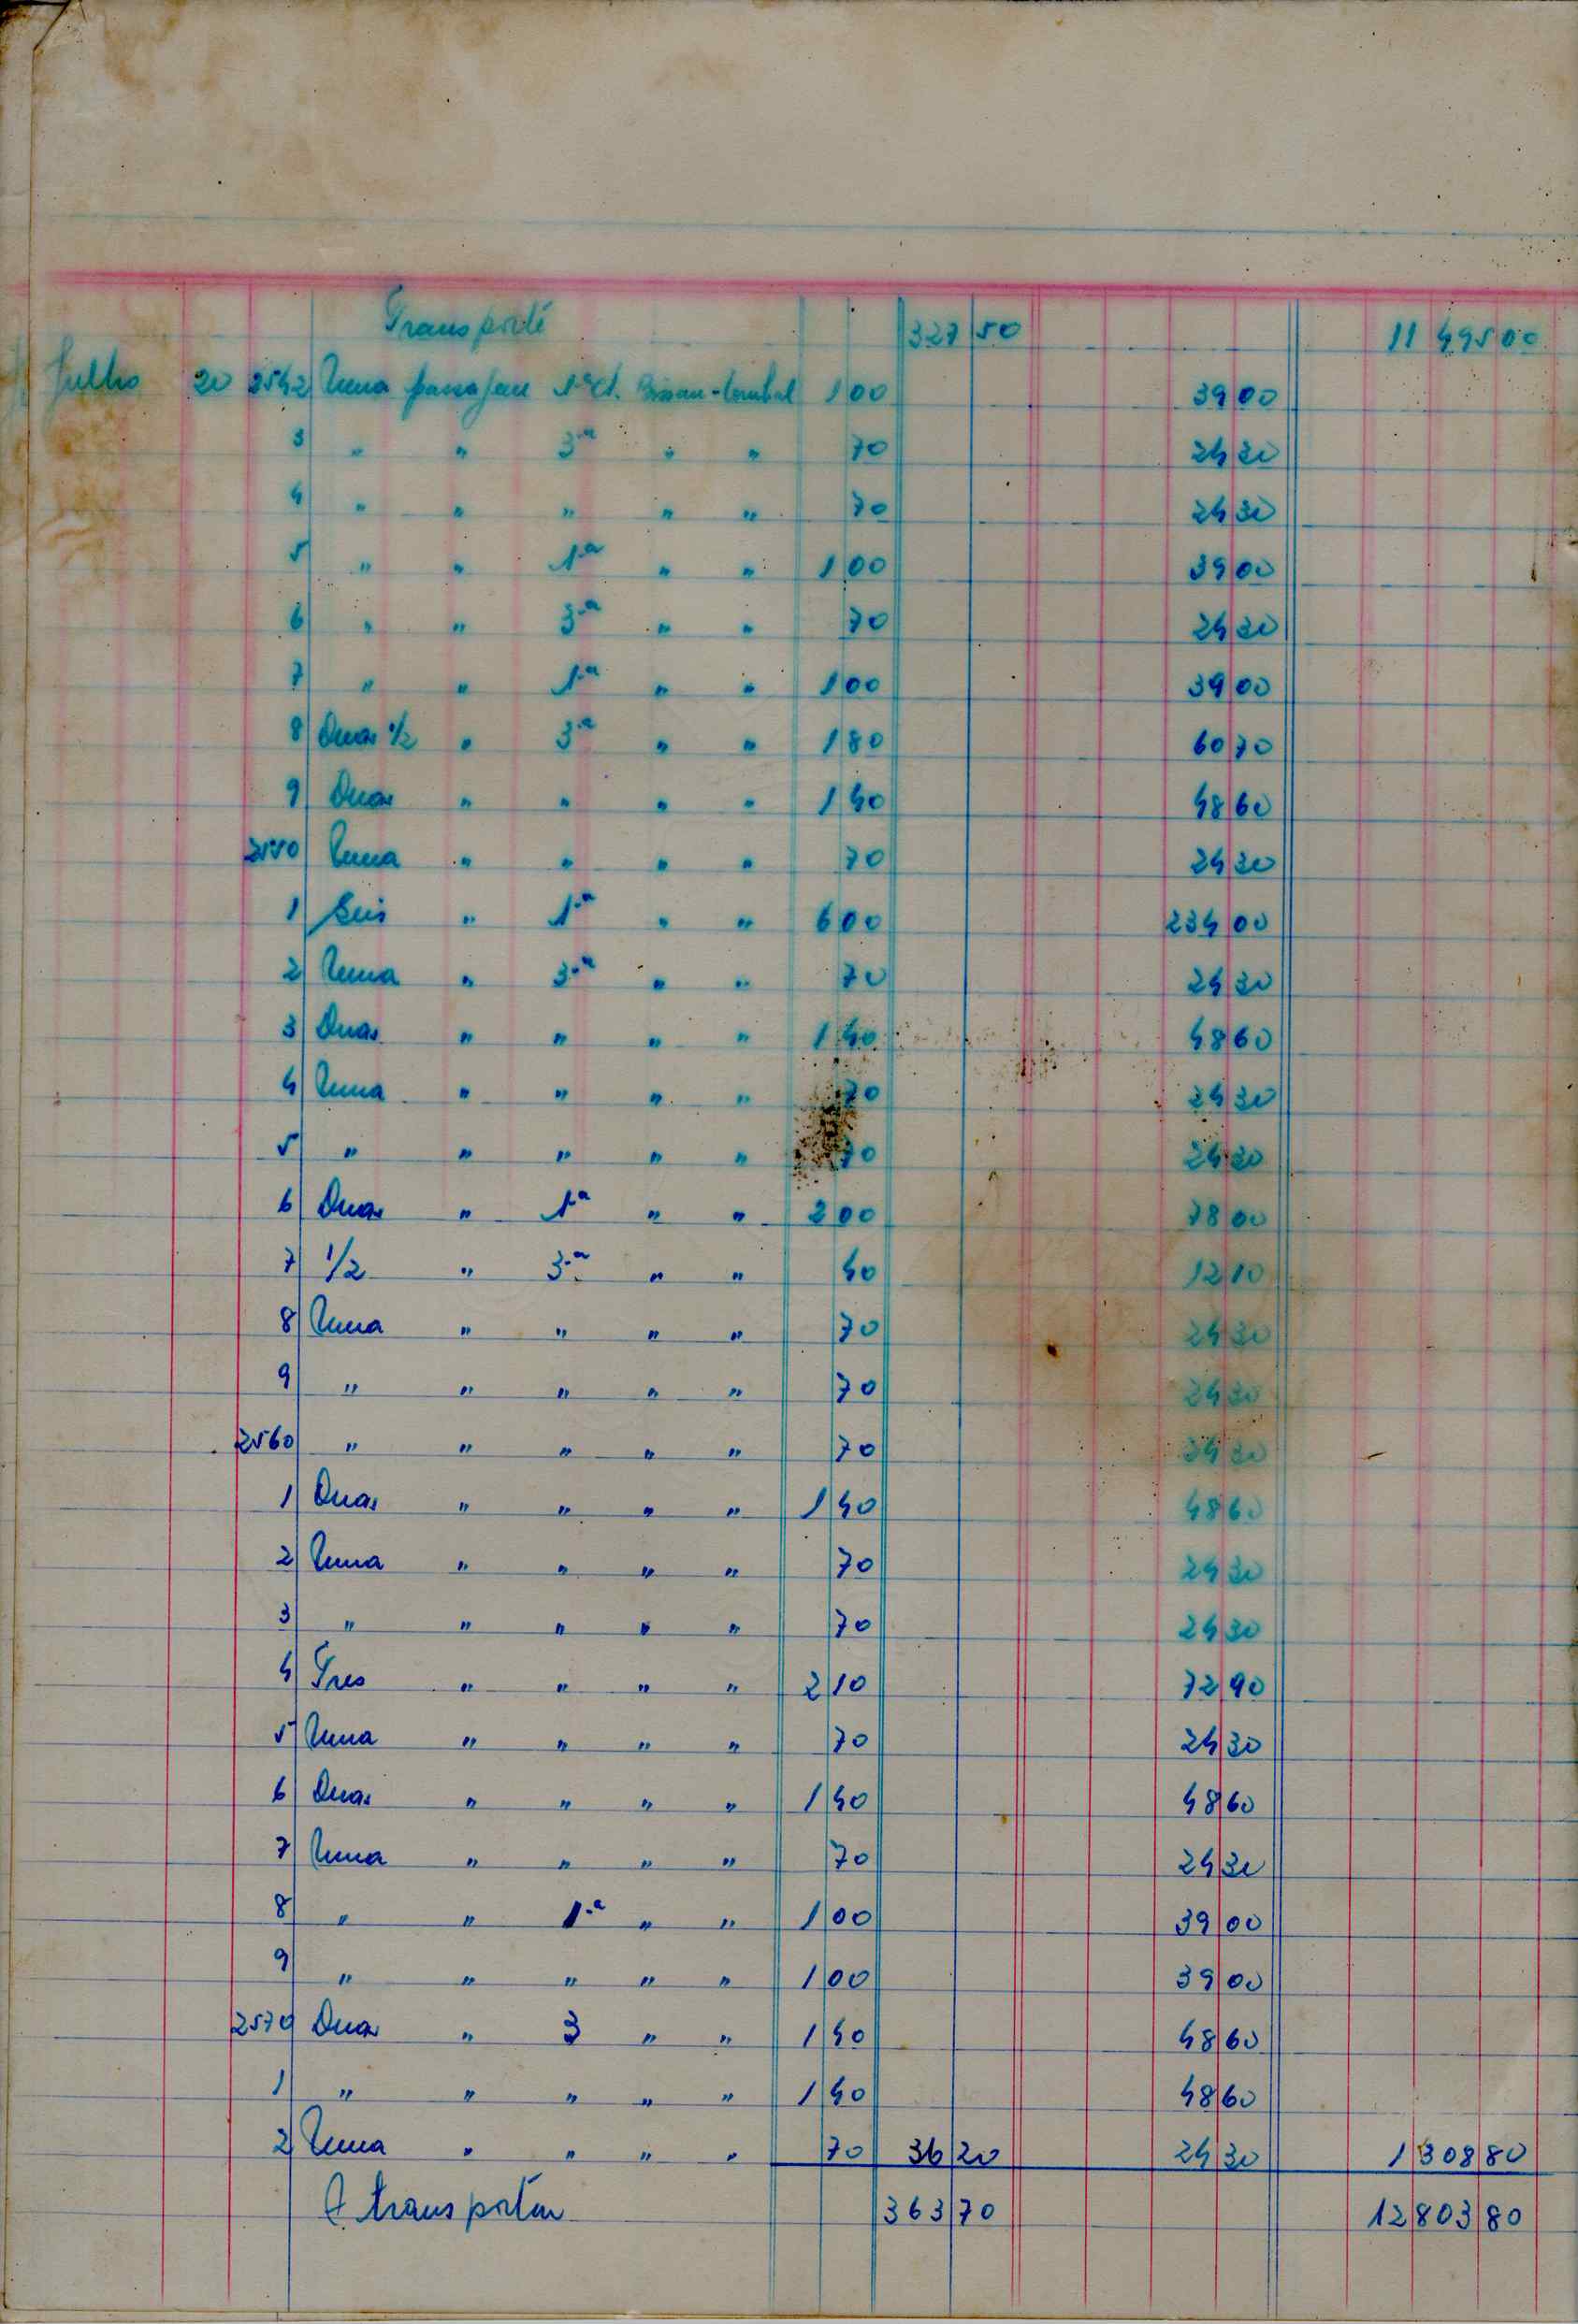 Transporte 327 50 11 495 00
Julho 20 2542 Uma passajem 1ª cl. Bissau-Cumbal 1 00 39 00
3 " " 3ª " " 70 24 30
4 " " " " " 70 24 30
5 " " 1ª " " 1 00 39 00
6 " " 3ª " " 70 24 30
7 " " 1ª " " 1 00 39 00
8 Duas 1/2 " 3ª " " 1 80 60 70
9 Duas " " " " 1 40 48 60
2550 Uma " " " " 70 24 30
1 Seis " 1ª " " 6 00 234 00
2 Uma " 3ª " " 70 24 30
3 Duas " " " " 1 40 48 60
4 Uma " " " " 70 24 30
5 " " " " " 70 24 30
6 Duas " 1ª " " 2 00 78 00
7 1/2 " 3ª " " 40 12 10
8 Uma " " " " 70 24 30
9 " " " " " 70 24 30
2560 " " " " " 70 24 30
1 Duas " " " " 1 40 48 60
2 Uma " " " " 70 24 30
3 " " " " " 70 24 30
4 Tres " " " " 2 10 72 90
5 Uma " " " " 70 24 30
6 Duas " " " " 1 40 48 60
7 Uma " " " " 70 24 30
8 " " 1ª " " 1 00 39 00
9 " " " " " 1 00 39 00
2570 Duas " 3 " " 1 40 48 60
1 " " " " " 1 40 48 60
2 Uma " " " " 70 36 20 24 30 1 308 80
A transportar 363 70 12 803 80